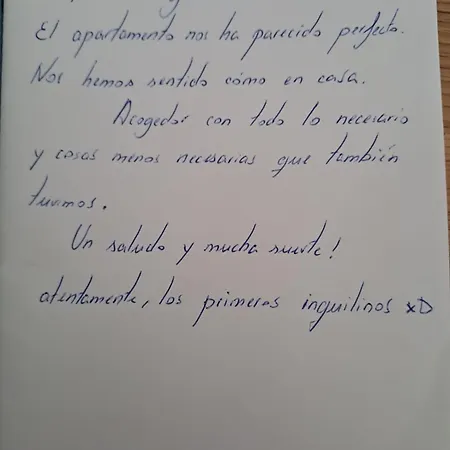 El apartamento nos ha parecido perfecto.
Nos hemos sentido como en casa.
Acogedor con todo lo necesario
y cosas menos necesarias que también
tuvimos.
Un saludo y mucha suerte!
atentamente, los primeros inquilinos xD